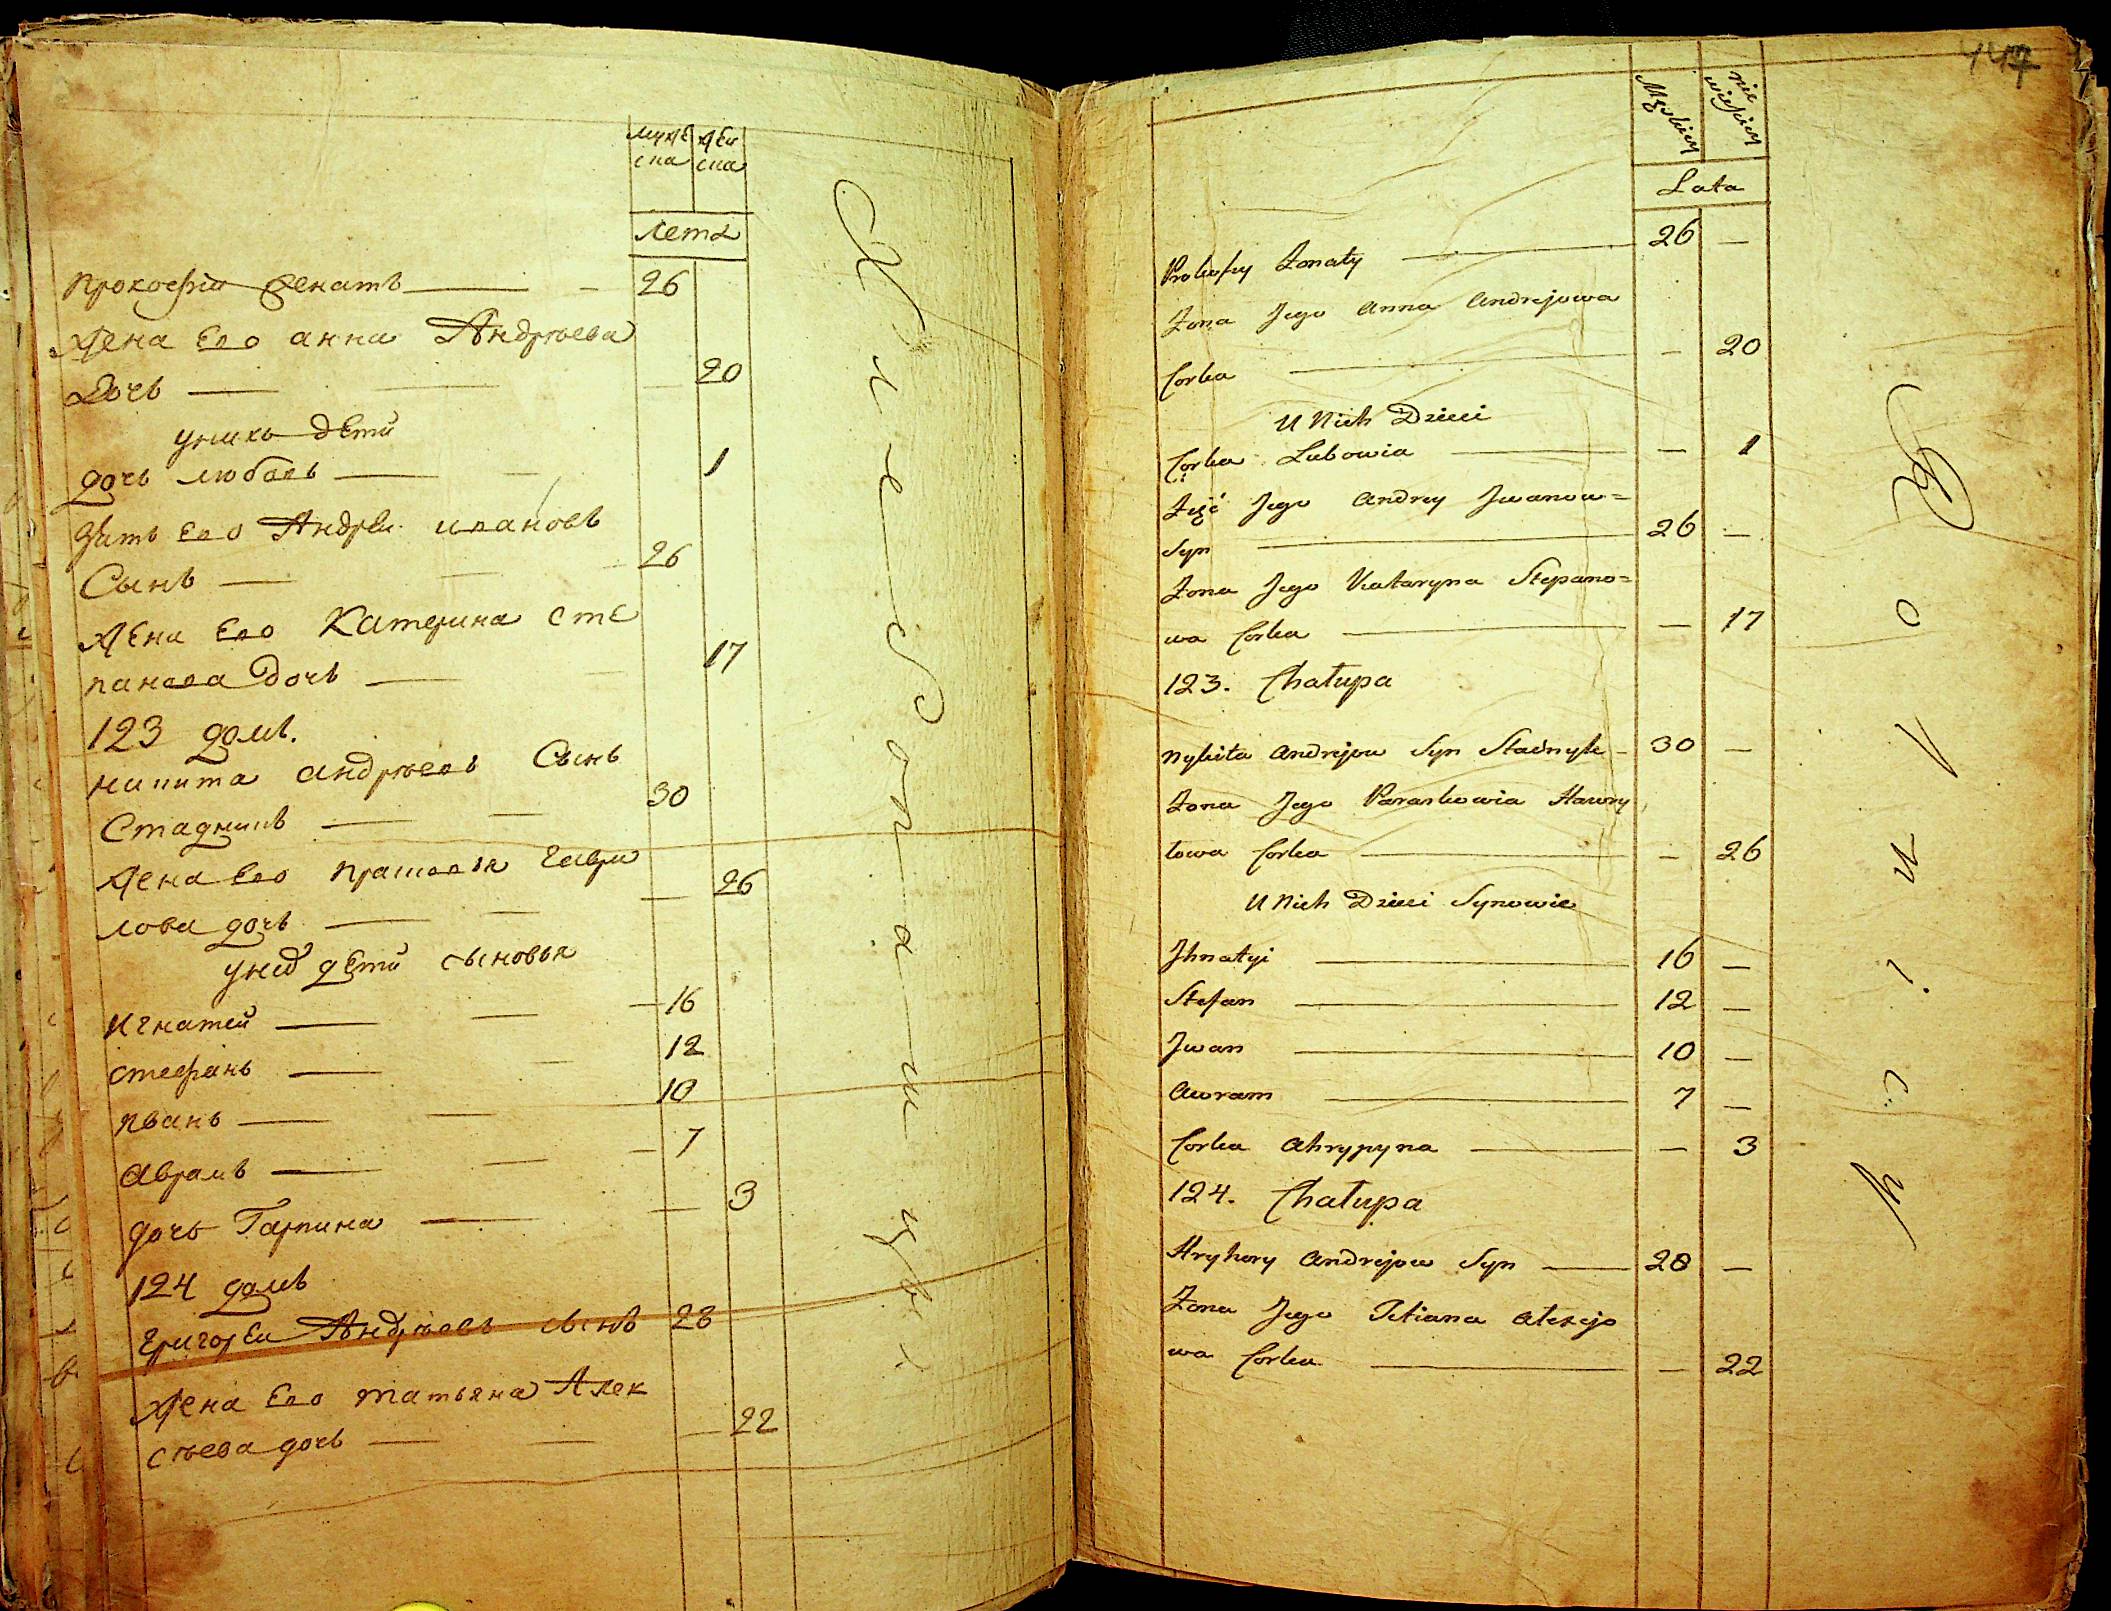 муже жен
ска ска
лета
Прокофий женатъ — 26
жена Его анна Андрѣева
Дочь — — — 20
унихъ дети
дочь любовь — — 1
Зять Его Андрей ивановъ
Сынъ — — 26
жена Его Катерина сте
панова дочь — — 17
123 домъ.
никита андрѣевъ Сынъ
Стадникъ — — 30
жена Его Гаври
лова дочь — — — 26
унихъ дети сыновья
игнатей — — — 16
стефанъ — — 12
иванъ — — 10
аврамъ — — — 7
дочь Гарпина — — 3
124 домъ
григорей Андрѣевъ сынъ 28
жена Его татьяна Алек
сѣева дочь — — — 22
147
Męskiey nie
wieściey
Lata
Prokofiy Żonaty — 26 —
Żona Jego Anna Andrejowa
Corka — — 20
U Nich Dzieci
Corka Lubowia — — 1
Zięć Jego Andrey Jwanow=
Syn — 26 —
Żona Jego Kataryna Stepano=
wa Corka — — 17
123. Chałupa
Nykita Andrejow Syn Stadnyk — 30 —
Żona Jego Paraskowia Hawry
łowa Corka — — 26
U Nich Dzieci Synowie
Jhnatyi — 16 —
Stefan — 12 —
Jwan — 10 —
Awram — 7 —
Corka Ahrypyna — — 3
124. Chałupa
Hryhory Andrejow Syn — 28 —
Żona Jego Tetiana Alexejo
wa Corka — — 22